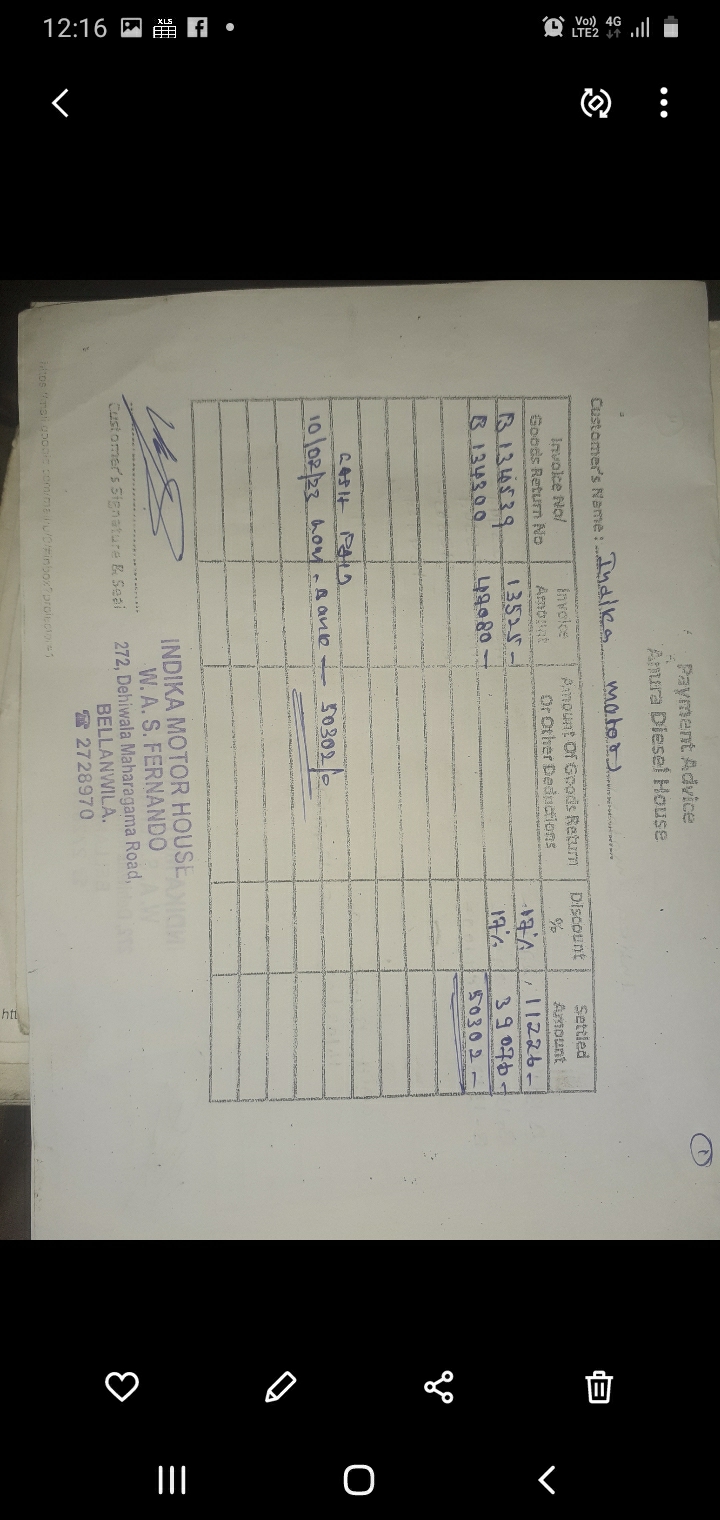 12:16
XLS
Vo)) LTE2 4G
1
Payment Advice
Anura Diesel House
Customer's Name : Indika motor
Invoice No/ Goods Return No
Invoice Amount
Amount Of Goods Return Or Other Deductions
Discount %
Settled Amount
B 134539 13525 - 17% 11226 -
B 134300 47080 - 17% 39076 -
50302 -
CASH PAID
10/02/23 - Bank — 50302/
INDIKA MOTOR HOUSE
W. A. S. FERNANDO
272, Dehiwala Maharagama Road,
BELLANWILA.
☎ 2728970
Customer's Signature & Seal
htt